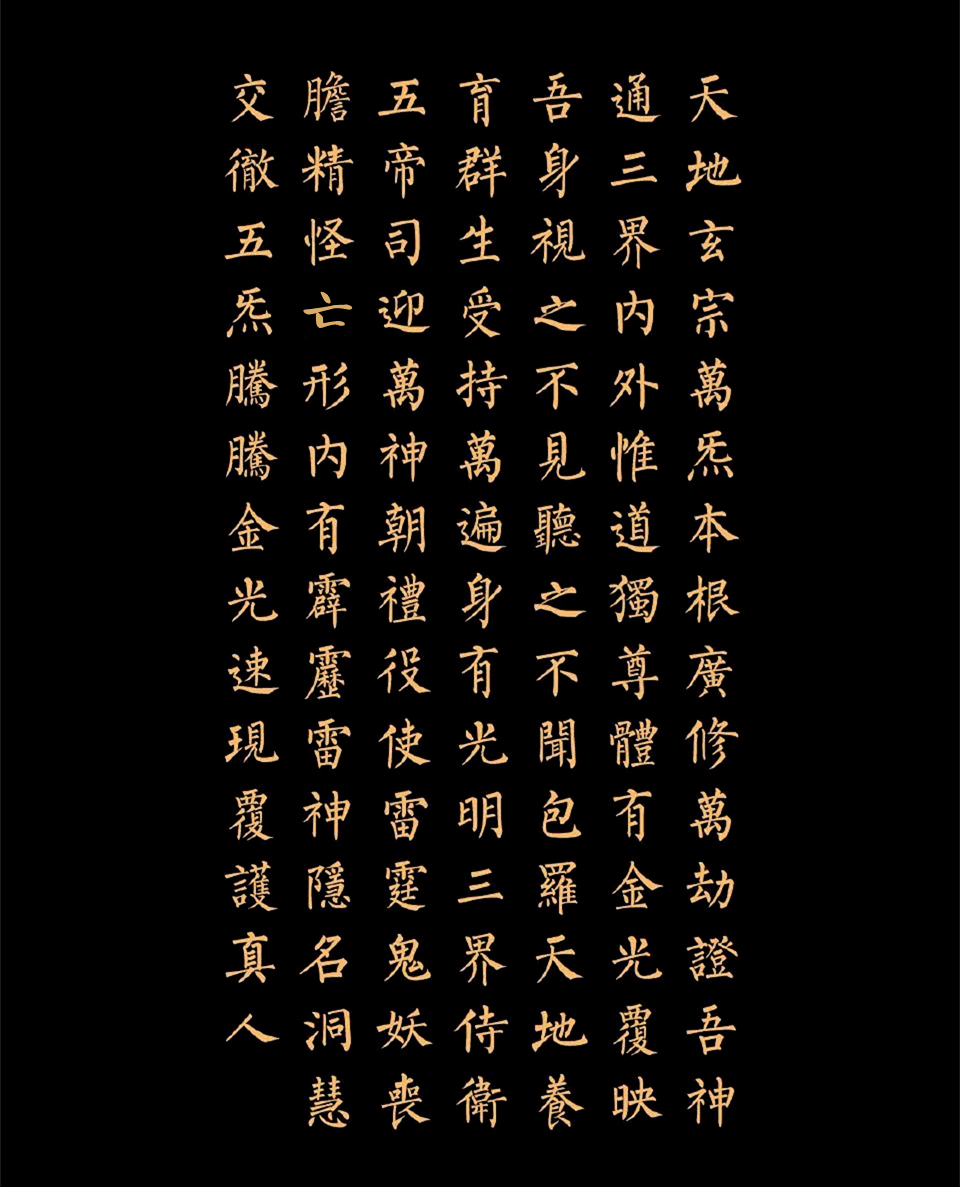 天地玄宗萬炁本根廣修萬劫證吾神
通三界內外惟道獨尊體有金光覆映
吾身視之不見聽之不聞包羅天地養
育群生受持萬遍身有光明三界侍衛
五帝司迎萬神朝禮役使雷霆鬼妖喪
膽精怪亡形內有霹靂雷神隱名洞慧
交徹五炁騰騰金光速現覆護真人